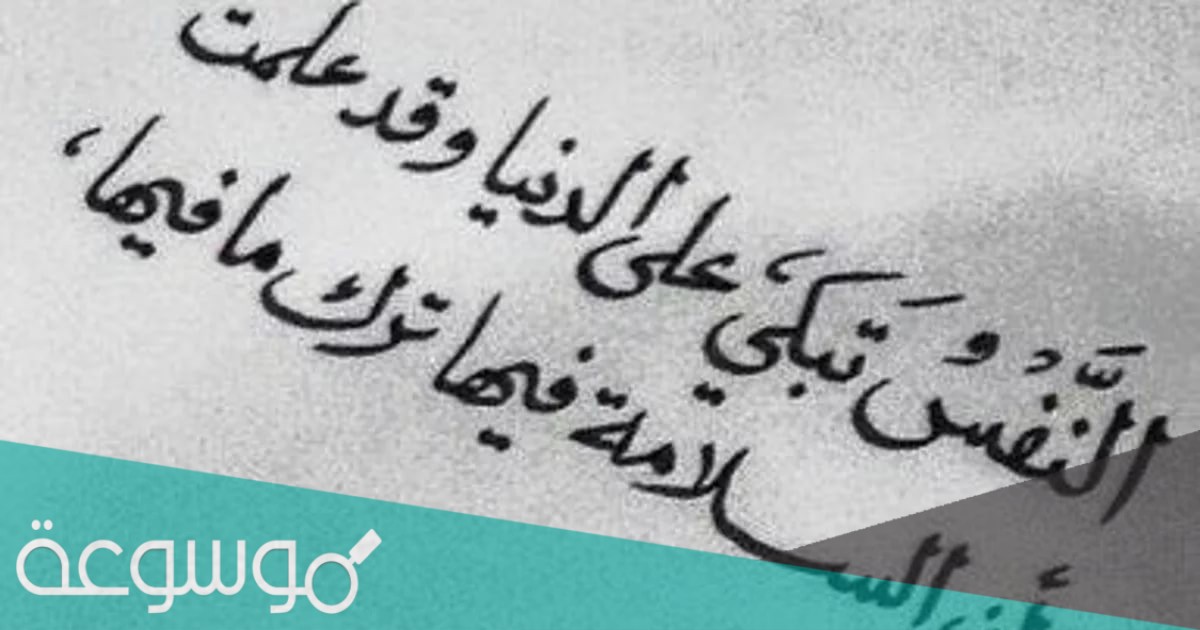 النَّفْسُ تبكي على الدنيا وقد علمت
أن السلامة فيها ترك ما فيها،
موسوعة